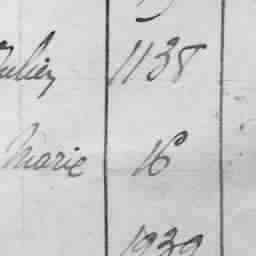 Julien 1138
Marie 16
1939